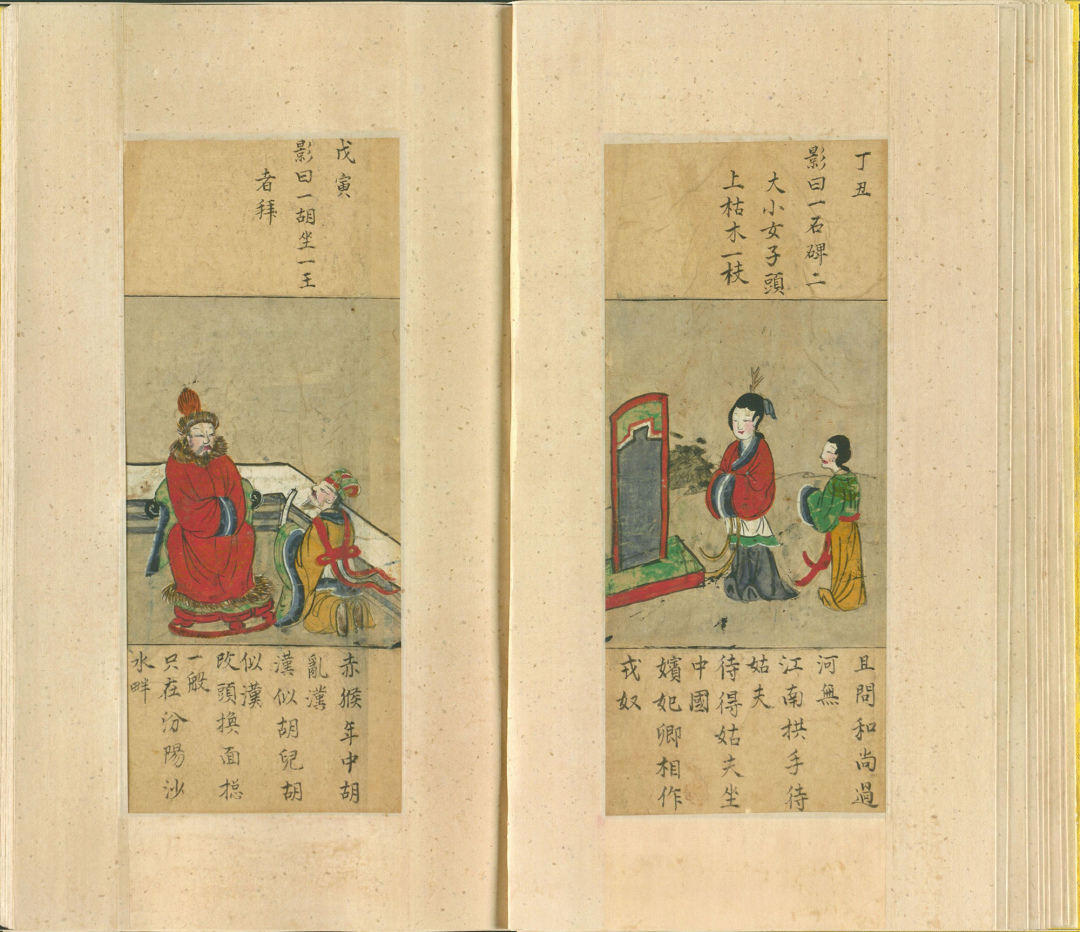 丁丑
影曰一石碑二
大小女子頭
上枯木一枝
且問和尚過
河無
江南拱手待
姑夫
待得姑夫坐
中國
嬪妃卿相作
戎奴
戊寅
影曰一胡坐一王
者拜
赤猴年中胡
亂漢
漢似胡兒胡
似漢
改頭換面揔
一般
只在汾陽沙
水畔